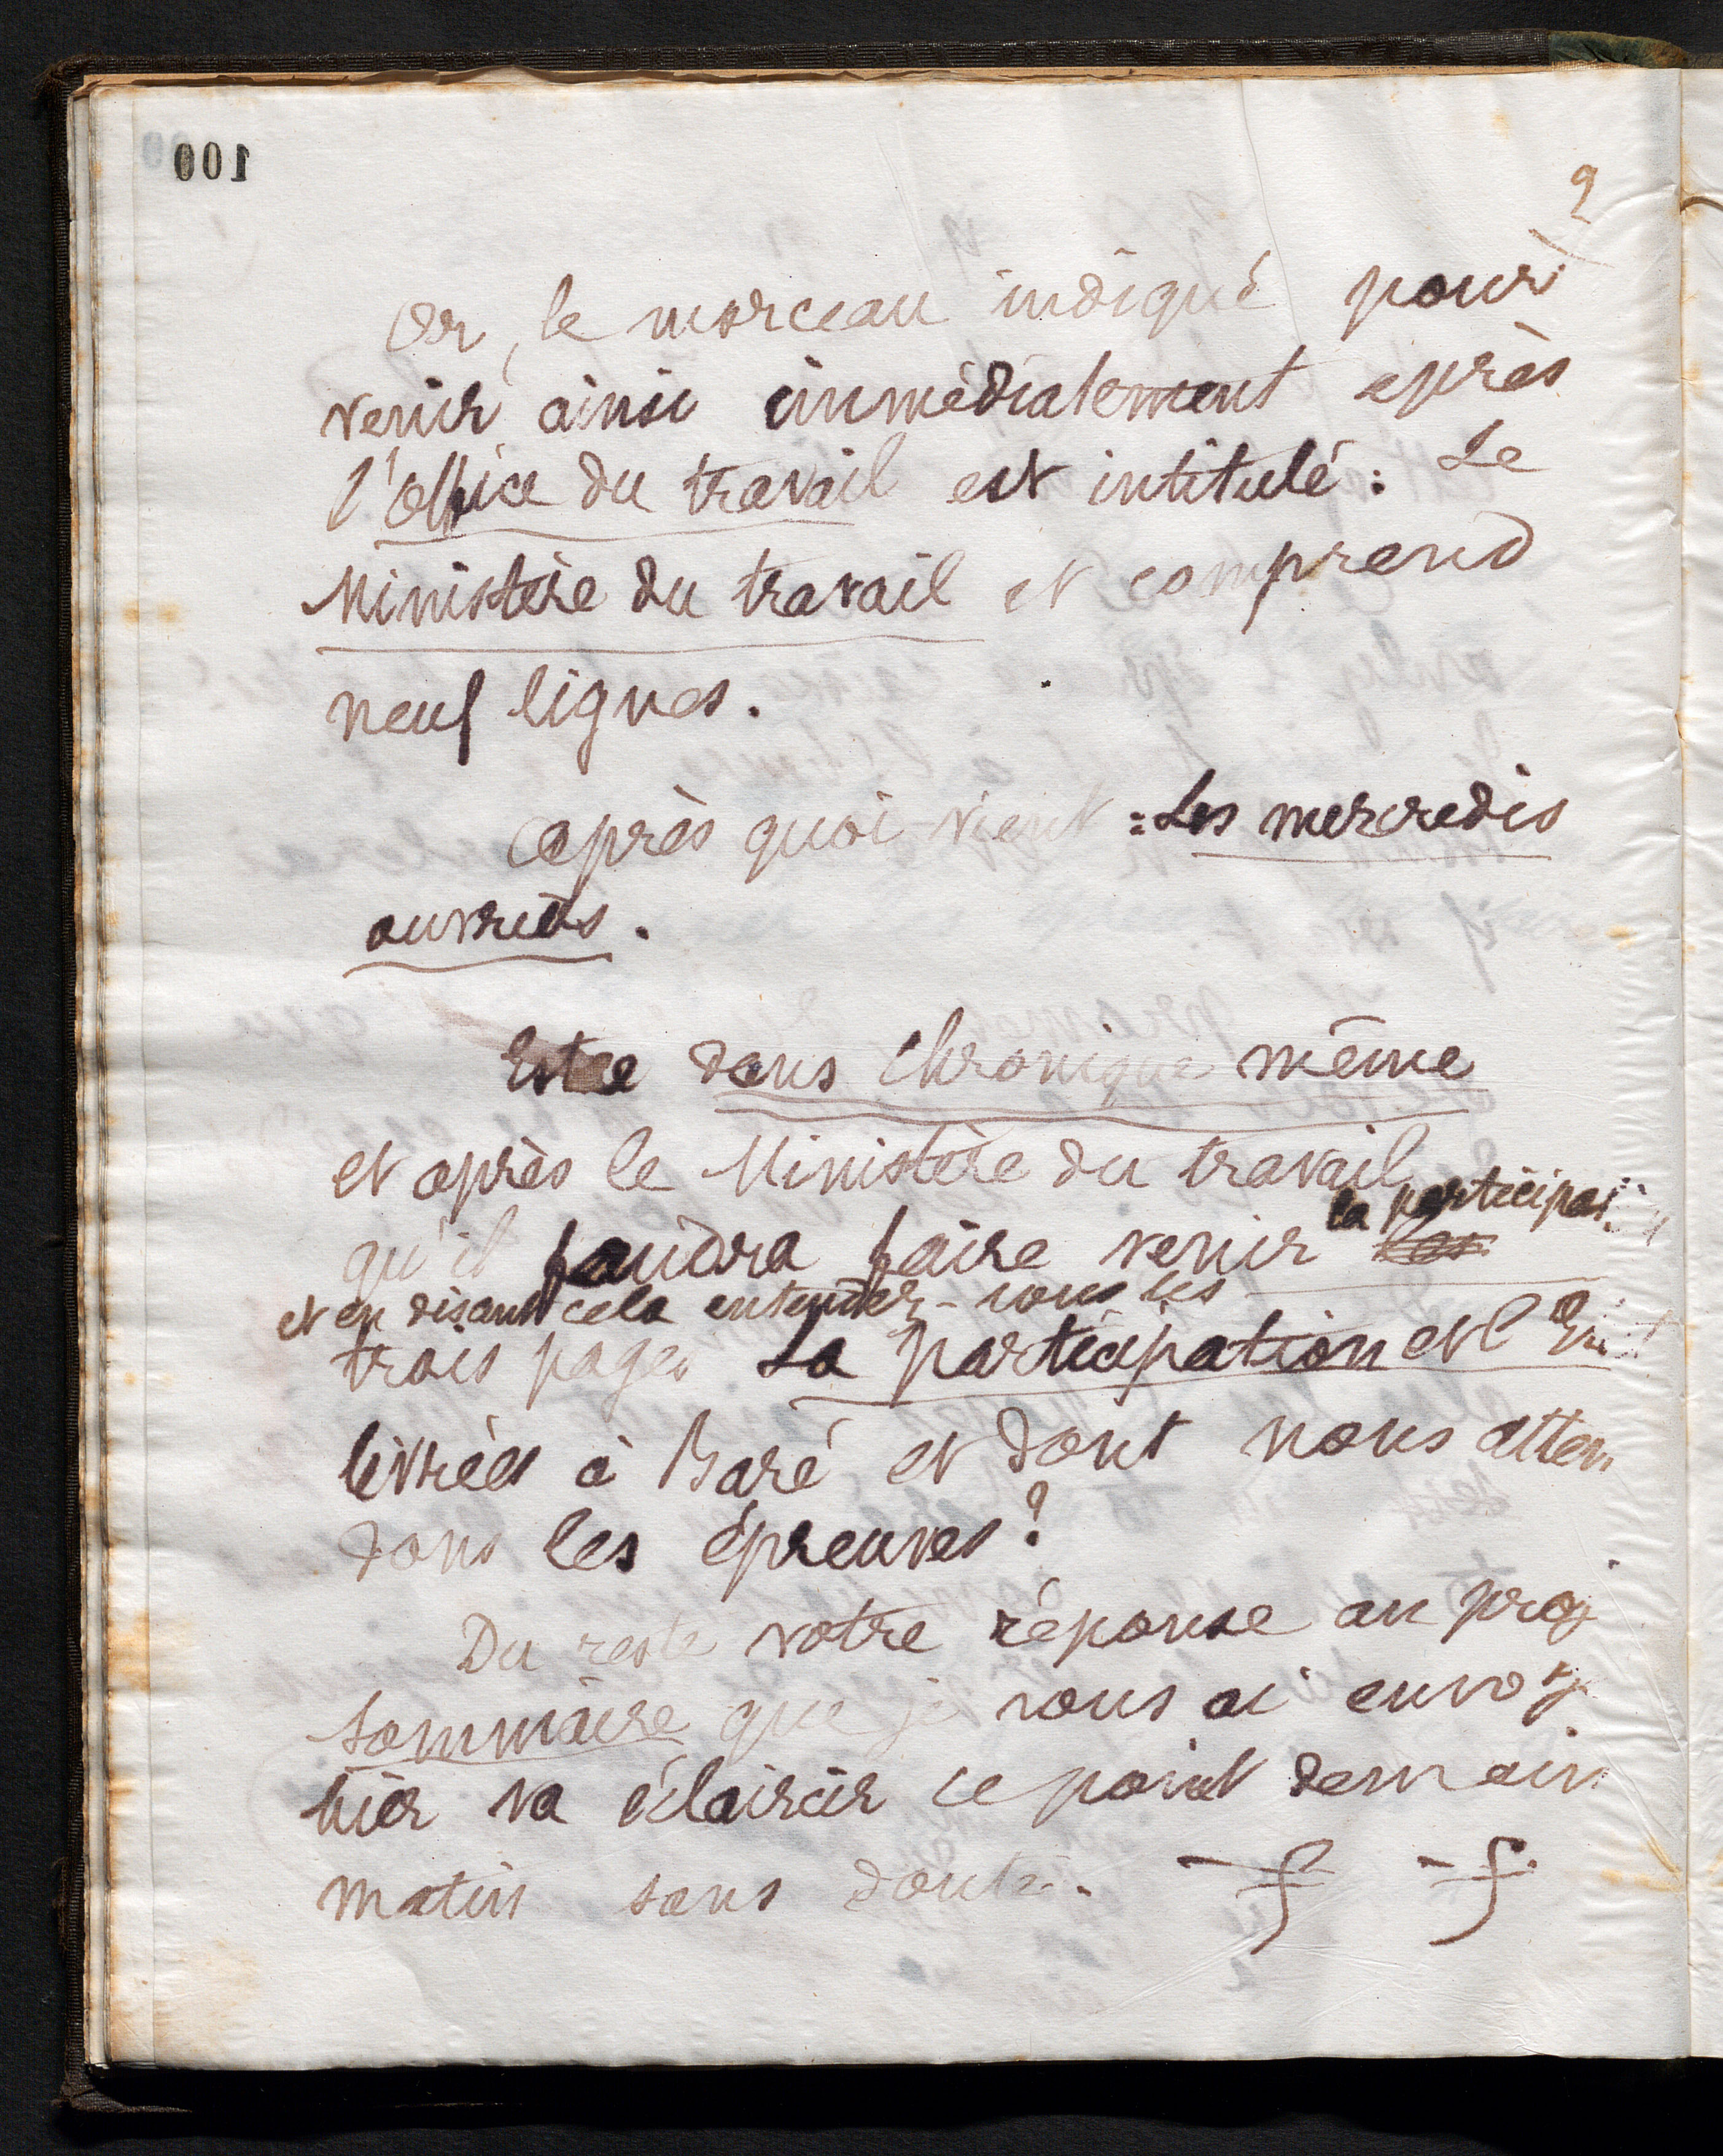 100
2
Or, le morceau indiqué pour
venir ainsi immédiatement après
l'office du travail est intitulé : Le
Ministère du travail et comprend
neuf lignes.
après quoi vient : Les mercredis
ouvriers.
Est ce dans Chronique même
et après le Ministère du travail
la participation
qu'il faudra faire venir les
et en disant cela entendez-vous les
trois pages La participation et l'
livrées à Baré et dont nous atten
dons les épreuves ?
Du reste votre réponse au proj
sommaire que je vous ai envoy
hier va éclaircir ce point demain
matin sans doute.